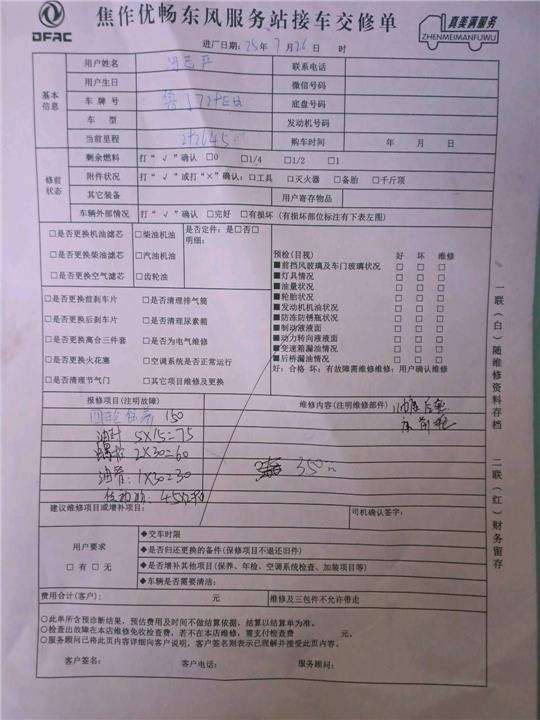 DFAC
焦作优畅东风服务站接车交修单
真美满服务
ZHENMEIMANFUWU
进厂日期：25年7月26日 时
基本信息
用户姓名
联系电话
用户生日
微信号码
车 牌 号
底盘号码
车 型
发动机号码
当前里程 242645
购车时间 年 月 日
修前状态
剩余燃料 打“√”确认 □0 □1/4 □1/2 □1
附件状况 打“√”或打“×”确认：□工具 □灭火器 □备胎 □千斤顶
其它装备
用户寄存物品
车辆外部情况 打“√”确认 □完好 □有损坏（有损坏部位标注有下表左图）
□是否更换机油滤芯 □柴油机油
□是否更换柴油滤芯 □汽油机油
□是否更换空气滤芯 □齿轮油
是否定件：是□否□
明细：
□是否更换前刹车片 □是否清理排气筒
□是否更换后刹车片 □是否清理尿素箱
□是否更换离合三件套 □是否为电气维修
□是否更换火花塞 □空调系统是否正常运行
□是否清理节气门 □其它项目维修及更换
预检（目视） 好 坏 维修
■前挡风玻璃及车门玻璃状况 □ □ □
■灯具情况 □ □ □
■油量状况 □ □ □
■轮胎状况 □ □ □
■发动机机油状况 □ □ □
■防冻防锈瓶状况 □ □ □
■制动液液面 □ □ □
■动力转向液液面 □ □ □
■变速箱漏油情况 □ □ □
■后桥漏油情况 □ □ □
好：合格 坏：有故障需维修维修：用户确认维修
报修项目（注明故障）
维修内容（注明维修部件）
四轮保养 150
5×15=75
2×30=60
油管：1×30=30
350元
建议维修项目或增补项目：
司机确认签字：
用户要求
□有 □无
◆交车时限
◆是否归还更换的备件（保修项目不退还旧件）
◆是否增补其他项目（保养、年检、空调系统检查、加装项目等）
◆车辆是否需要清洁：
费用合计（客户）： 元
维修及三包件不允许带走
○此单所含预诊断结果，预估费用及时间不做结算依据，结算以结算单为准。
○检查出故障在本店维修免收检查费，若不在本店维修，需支付检查费 元。
○服务顾问已将此页内容详细向客户说明，客户签名则表示已理解并接受此页内容。
客户签名： 客户电话： 服务顾问：
一联（白）随维修资料存档
二联（红）财务留存